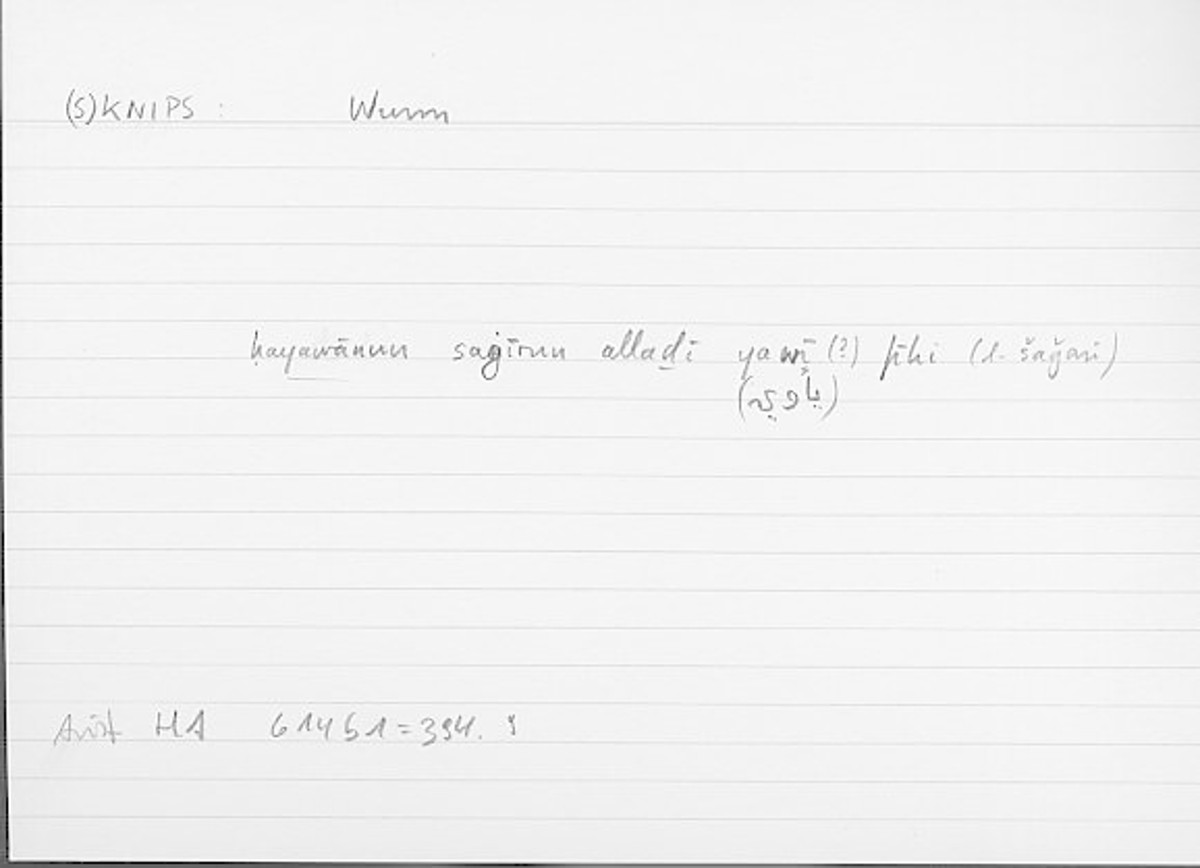 (S)KNIPS : Wurm
ḥayawānun saġīrun alladī yawī (?) fīhi (l-šaǧari)
(يأوي)
Arist HA 614b1 = 394. 9